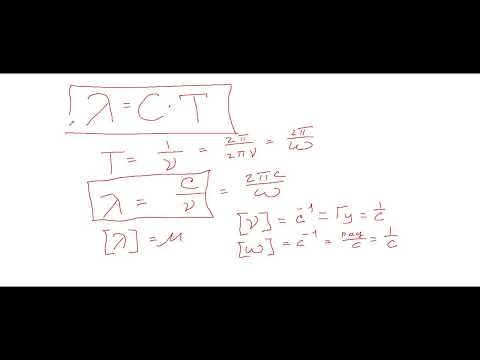 λ = C · T
T = 1/ν = 2π/2πν = 2π/ω
λ = c/ν = 2πc/ω
[λ] = м
[ν] = c⁻¹ = Гц = 1/c
[ω] = c⁻¹ = рад/c = 1/c